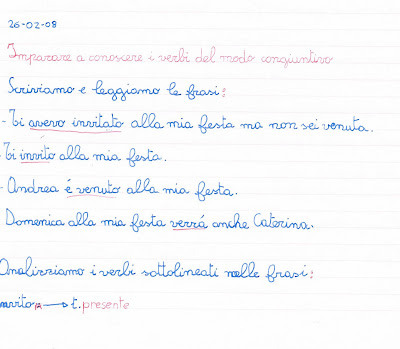 26-02-08
Imparare a conoscere i verbi del modo congiuntivo
Scriviamo e leggiamo le frasi:
- Ti avevo invitato alla mia festa ma non sei venuta.
- Ti invito alla mia festa.
- Andrea é venuto alla mia festa.
Domenica alla mia festa verrá anche Caterina.
Analizziamo i verbi sottolineati nelle frasi:
invito → t. presente